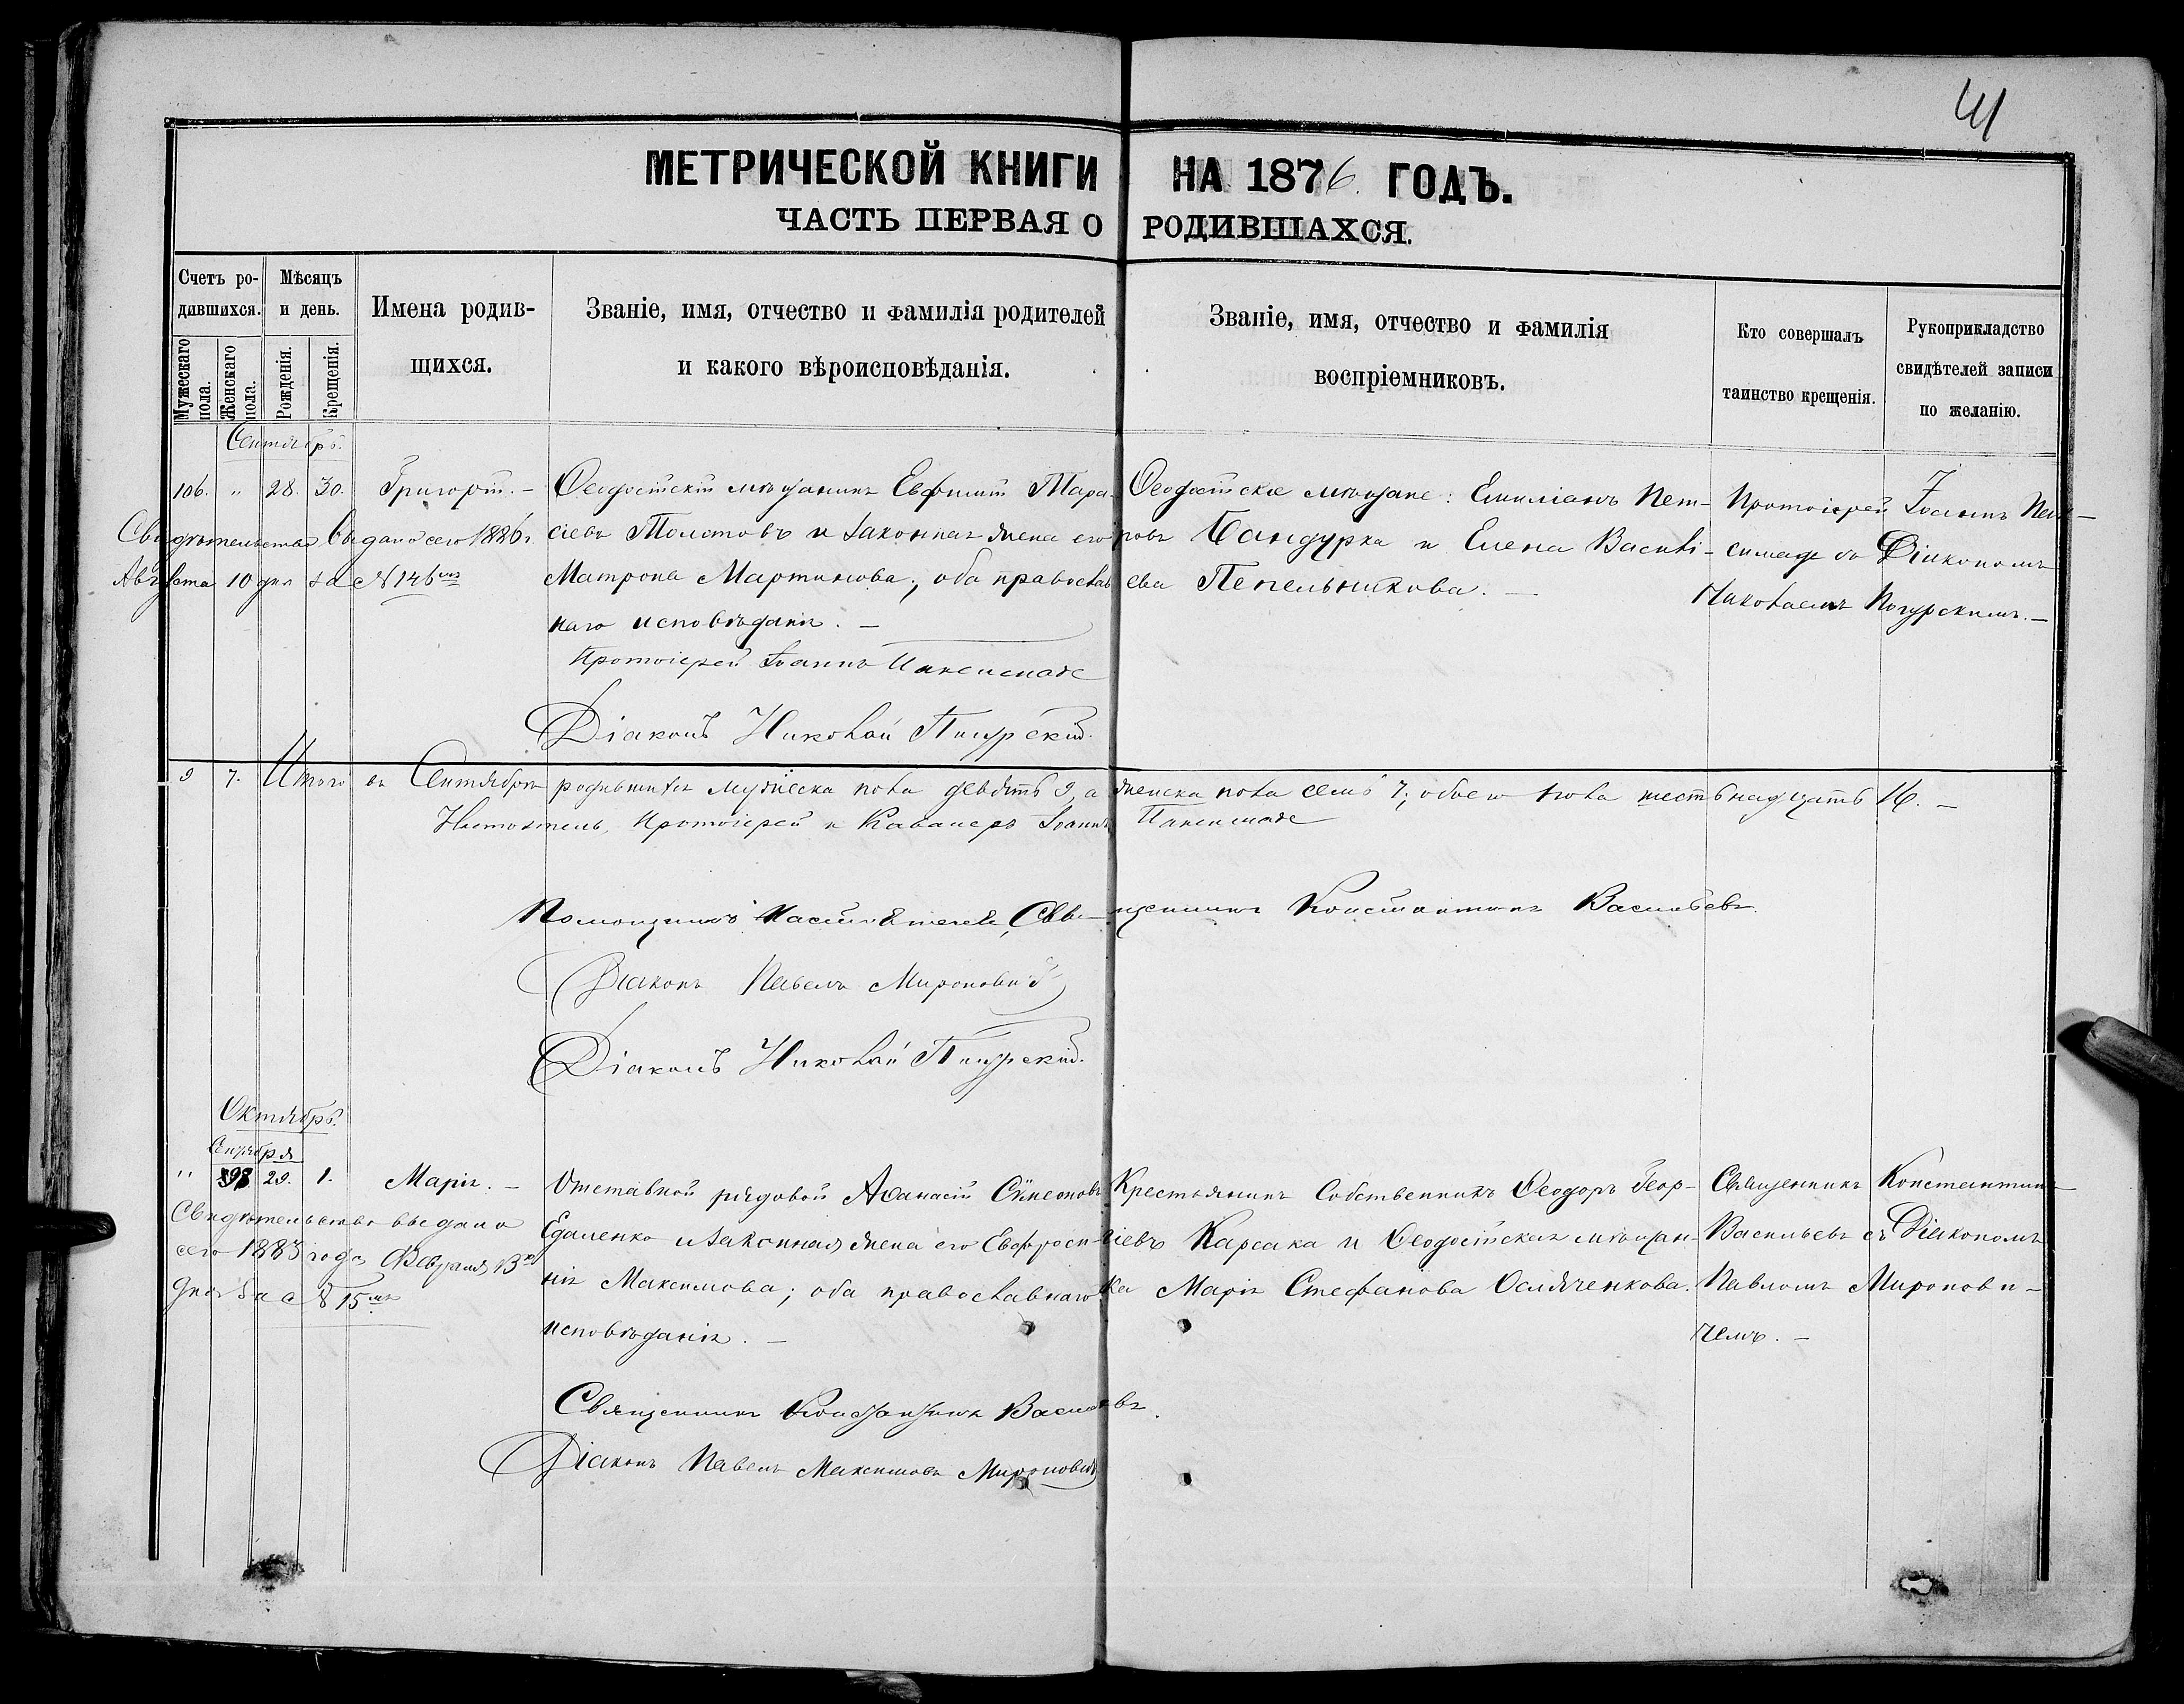 41
МЕТРИЧЕСКОЙ КНИГИ НА 1876 ГОДЪ.
ЧАСТЬ ПЕРВАЯ О РОДИВШАХСЯ.
Счетъ родившихся.
Мужескаго пола.
Женскаго пола.
Мѣсяцъ и день.
Рожденія.
Крещенія.
Имена родив-
щихся.
Званіе, имя, отчество и фамилія родителей
и какого вѣроисповѣданія.
Званіе, имя, отчество и фамилія
воспріемниковъ.
Кто совершалъ
таинство крещенія.
Рукоприкладство
свидѣтелей записи
по желанію.
Сентябрь.
106. " 28. 30. Григорій. –
Свидѣтельство выдано сего 1886 г.
Августа 10 дня за № 146
Ѳеодосійскій мѣщанинъ Евфимій Тара-
сіевъ Толстовъ и законная жена его
Матрона Мартинова; оба православ
наго исповѣданія. –
Протоіерей Іоаннъ
Діаконъ Николай
Ѳеодосійскіе мѣщане: Емиліанъ Пет-
ровъ Бандурка и Елена Василі-
ева Пепельникова. –
Протоіерей Іоаннъ
съ Діакономъ
Николаемъ
9 7. Итого въ Сентябрѣ родившихся мужеска пола девять 9, а женска пола семь 7; обоего пола шестьнадцать 16. –
Настоятель, Протоіерей и Кавалеръ Іоаннъ
Помощникъ Настоятеля, Священникъ Константинъ Васильевъ.
Діаконъ Павелъ Мироновичъ
Діаконъ Николай
Октябрь.
Сентября
" 98 29. 1. Марія. –
Свидѣтельство выдано
сего 1883 года Февраля 13
дня за № 15
Отставной рядовой Аѳанасій Сѵмеоновъ
Едаменко и законная жена его Евфроси-
нія Максимова; оба православнаго
исповѣданія. –
Священникъ Константинъ Васильевъ.
Діаконъ Павелъ Максимовъ Мироновичъ
Крестьянинъ Собственникъ Ѳеодоръ Геор-
гіевъ Карсака и Ѳеодосійская мѣщан-
ка Марія Стефанова Осляченкова.
Священникъ Константинъ
Васильевъ съ Діакономъ
Павломъ Миронови-
чемъ. –